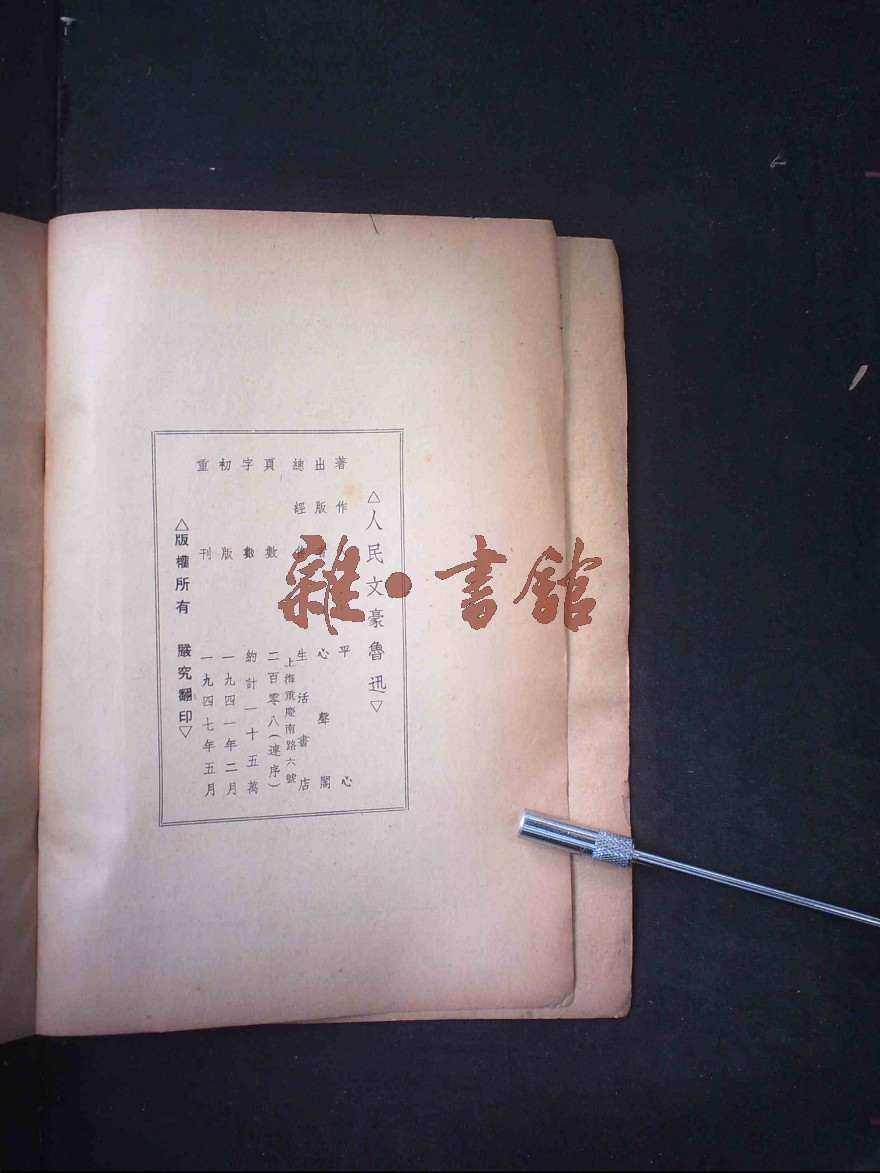 △人民文豪魯迅▽
著作 平心
出版者 心聲閣
總經 生活書店
上海重慶南路六號
頁數 二百零八(連序)
字數 約計一十五萬
初版 一九四一年二月
重刊 一九四七年五月
△版權所有 嚴究翻印▽
雜·書館